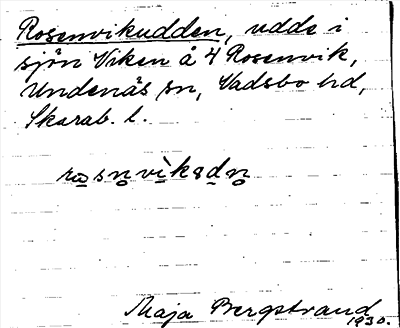 Rosenvikudden, udde i
sjön Viken å 4 Rosenvik,
Undenäs sn, Vadsbo hd,
Skarab. l.
Maja Bergstrand
1930.